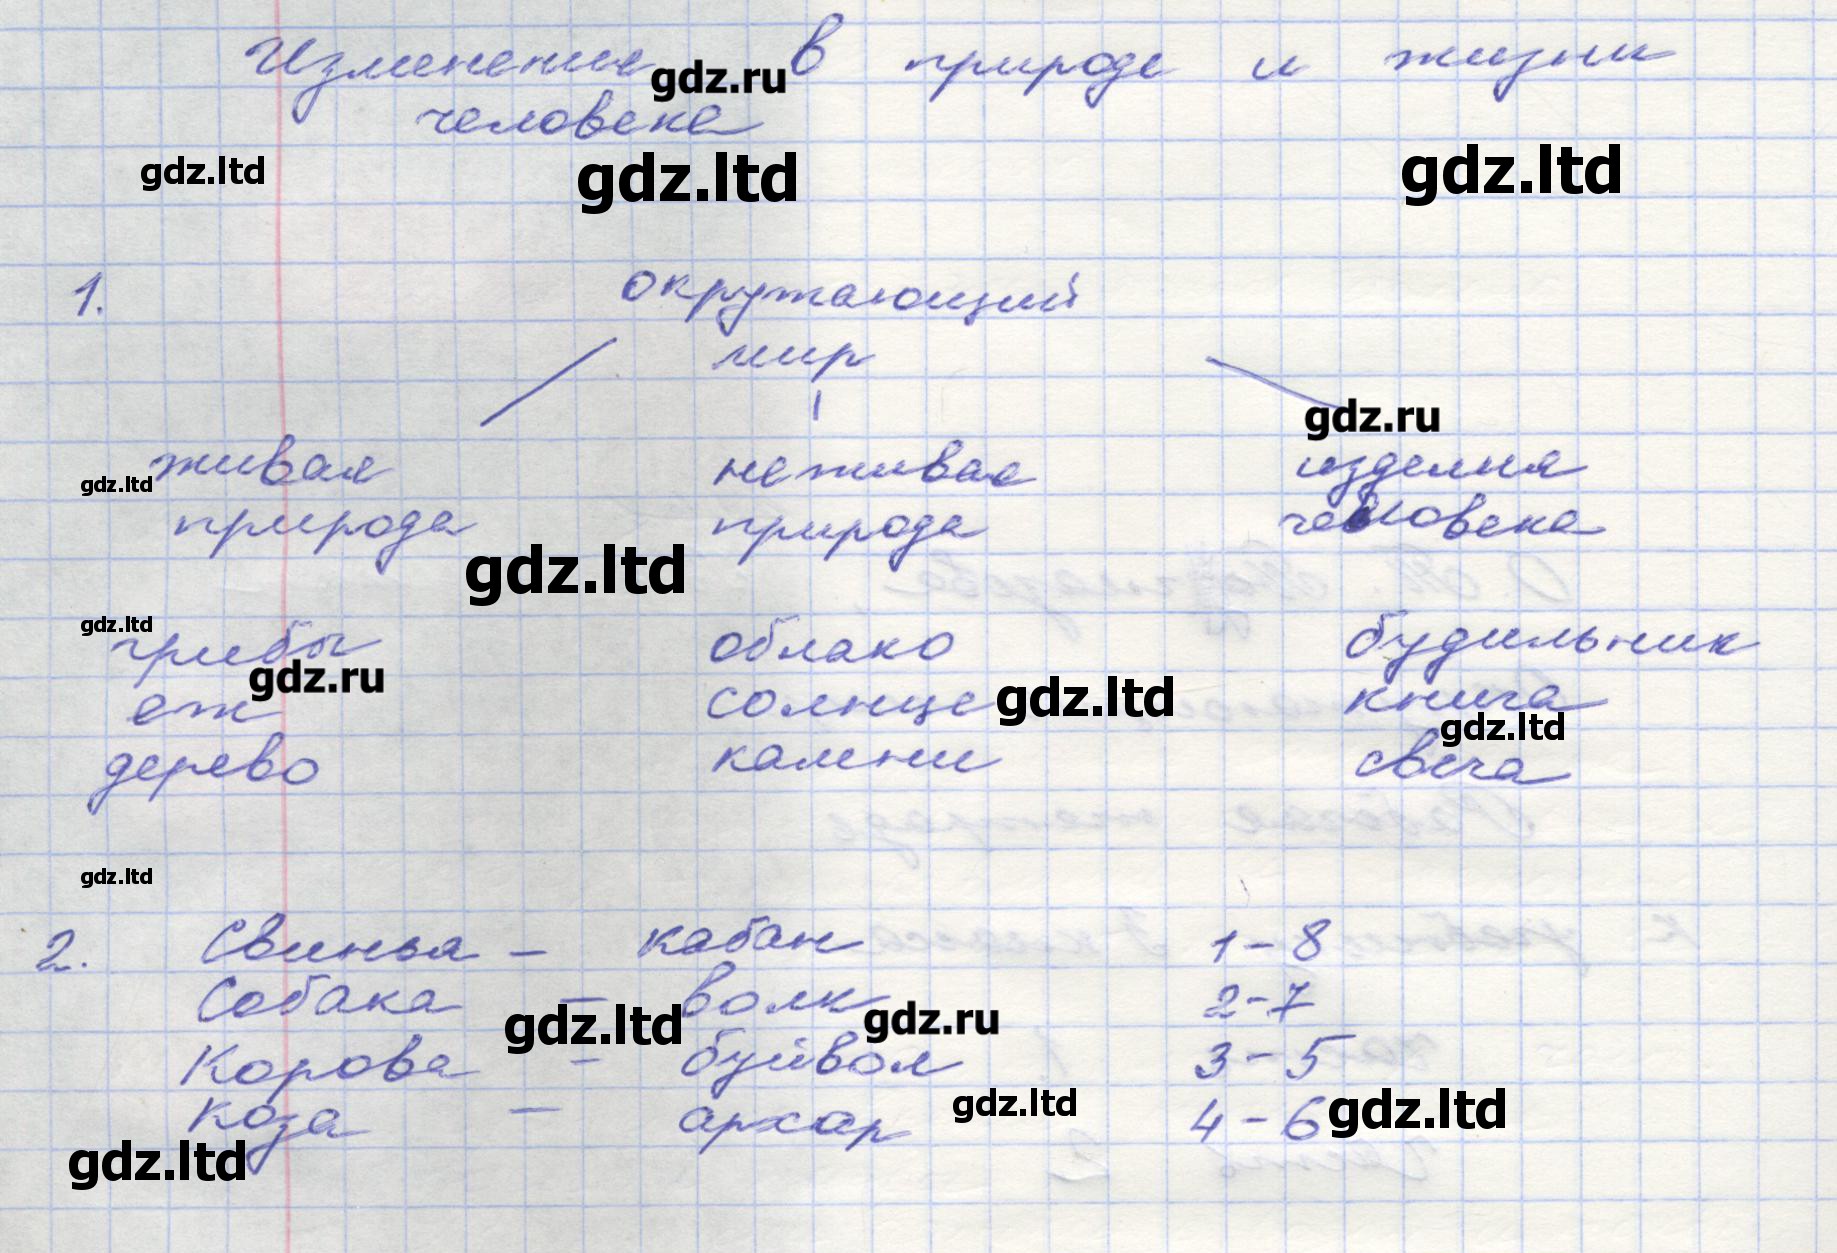 Изменение в природе и жизни
gdz.ru
человека
gdz.ltd gdz.ltd gdz.ltd
1. окружающий
мир
gdz.ru
живая неживая изделия
gdz.ltd
природа природа человека
gdz.ltd
gdz.ltd
грибы облако будильник
gdz.ru
еж солнце gdz.ltd книга
gdz.ltd
дерево камни свеча
gdz.ltd
2. Свинья – кабан 1-8
Собака – волк 2-7
gdz.ltd gdz.ru
Корова – буйвол 3-5
gdz.ltd gdz.ltd
Коза – архар 4-6
gdz.ltd